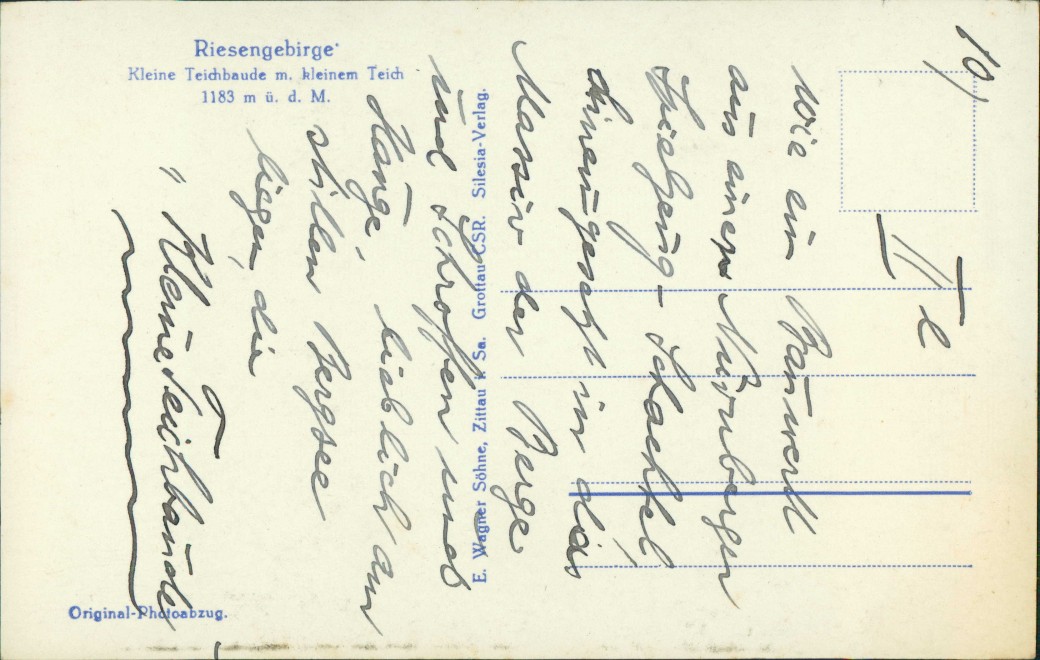 Riesengebirge
Kleine Teichbaude m. kleinem Teich
1183 m ü. d. M.
E. Wagner Söhne, Zittau i. Sa. Grottau CSR. Silesia-Verlag.
Original-Photoabzug.
10)
II e
Wie ein Bauwerk
aus einer Nürnberger
Spielzeug-Schachtel
hineingesetzt in das
Massiv der Berge
und Schroffen und
Hänge, lieblich am
stillen Bergsee
liegend die
"Kleine Teichbaude